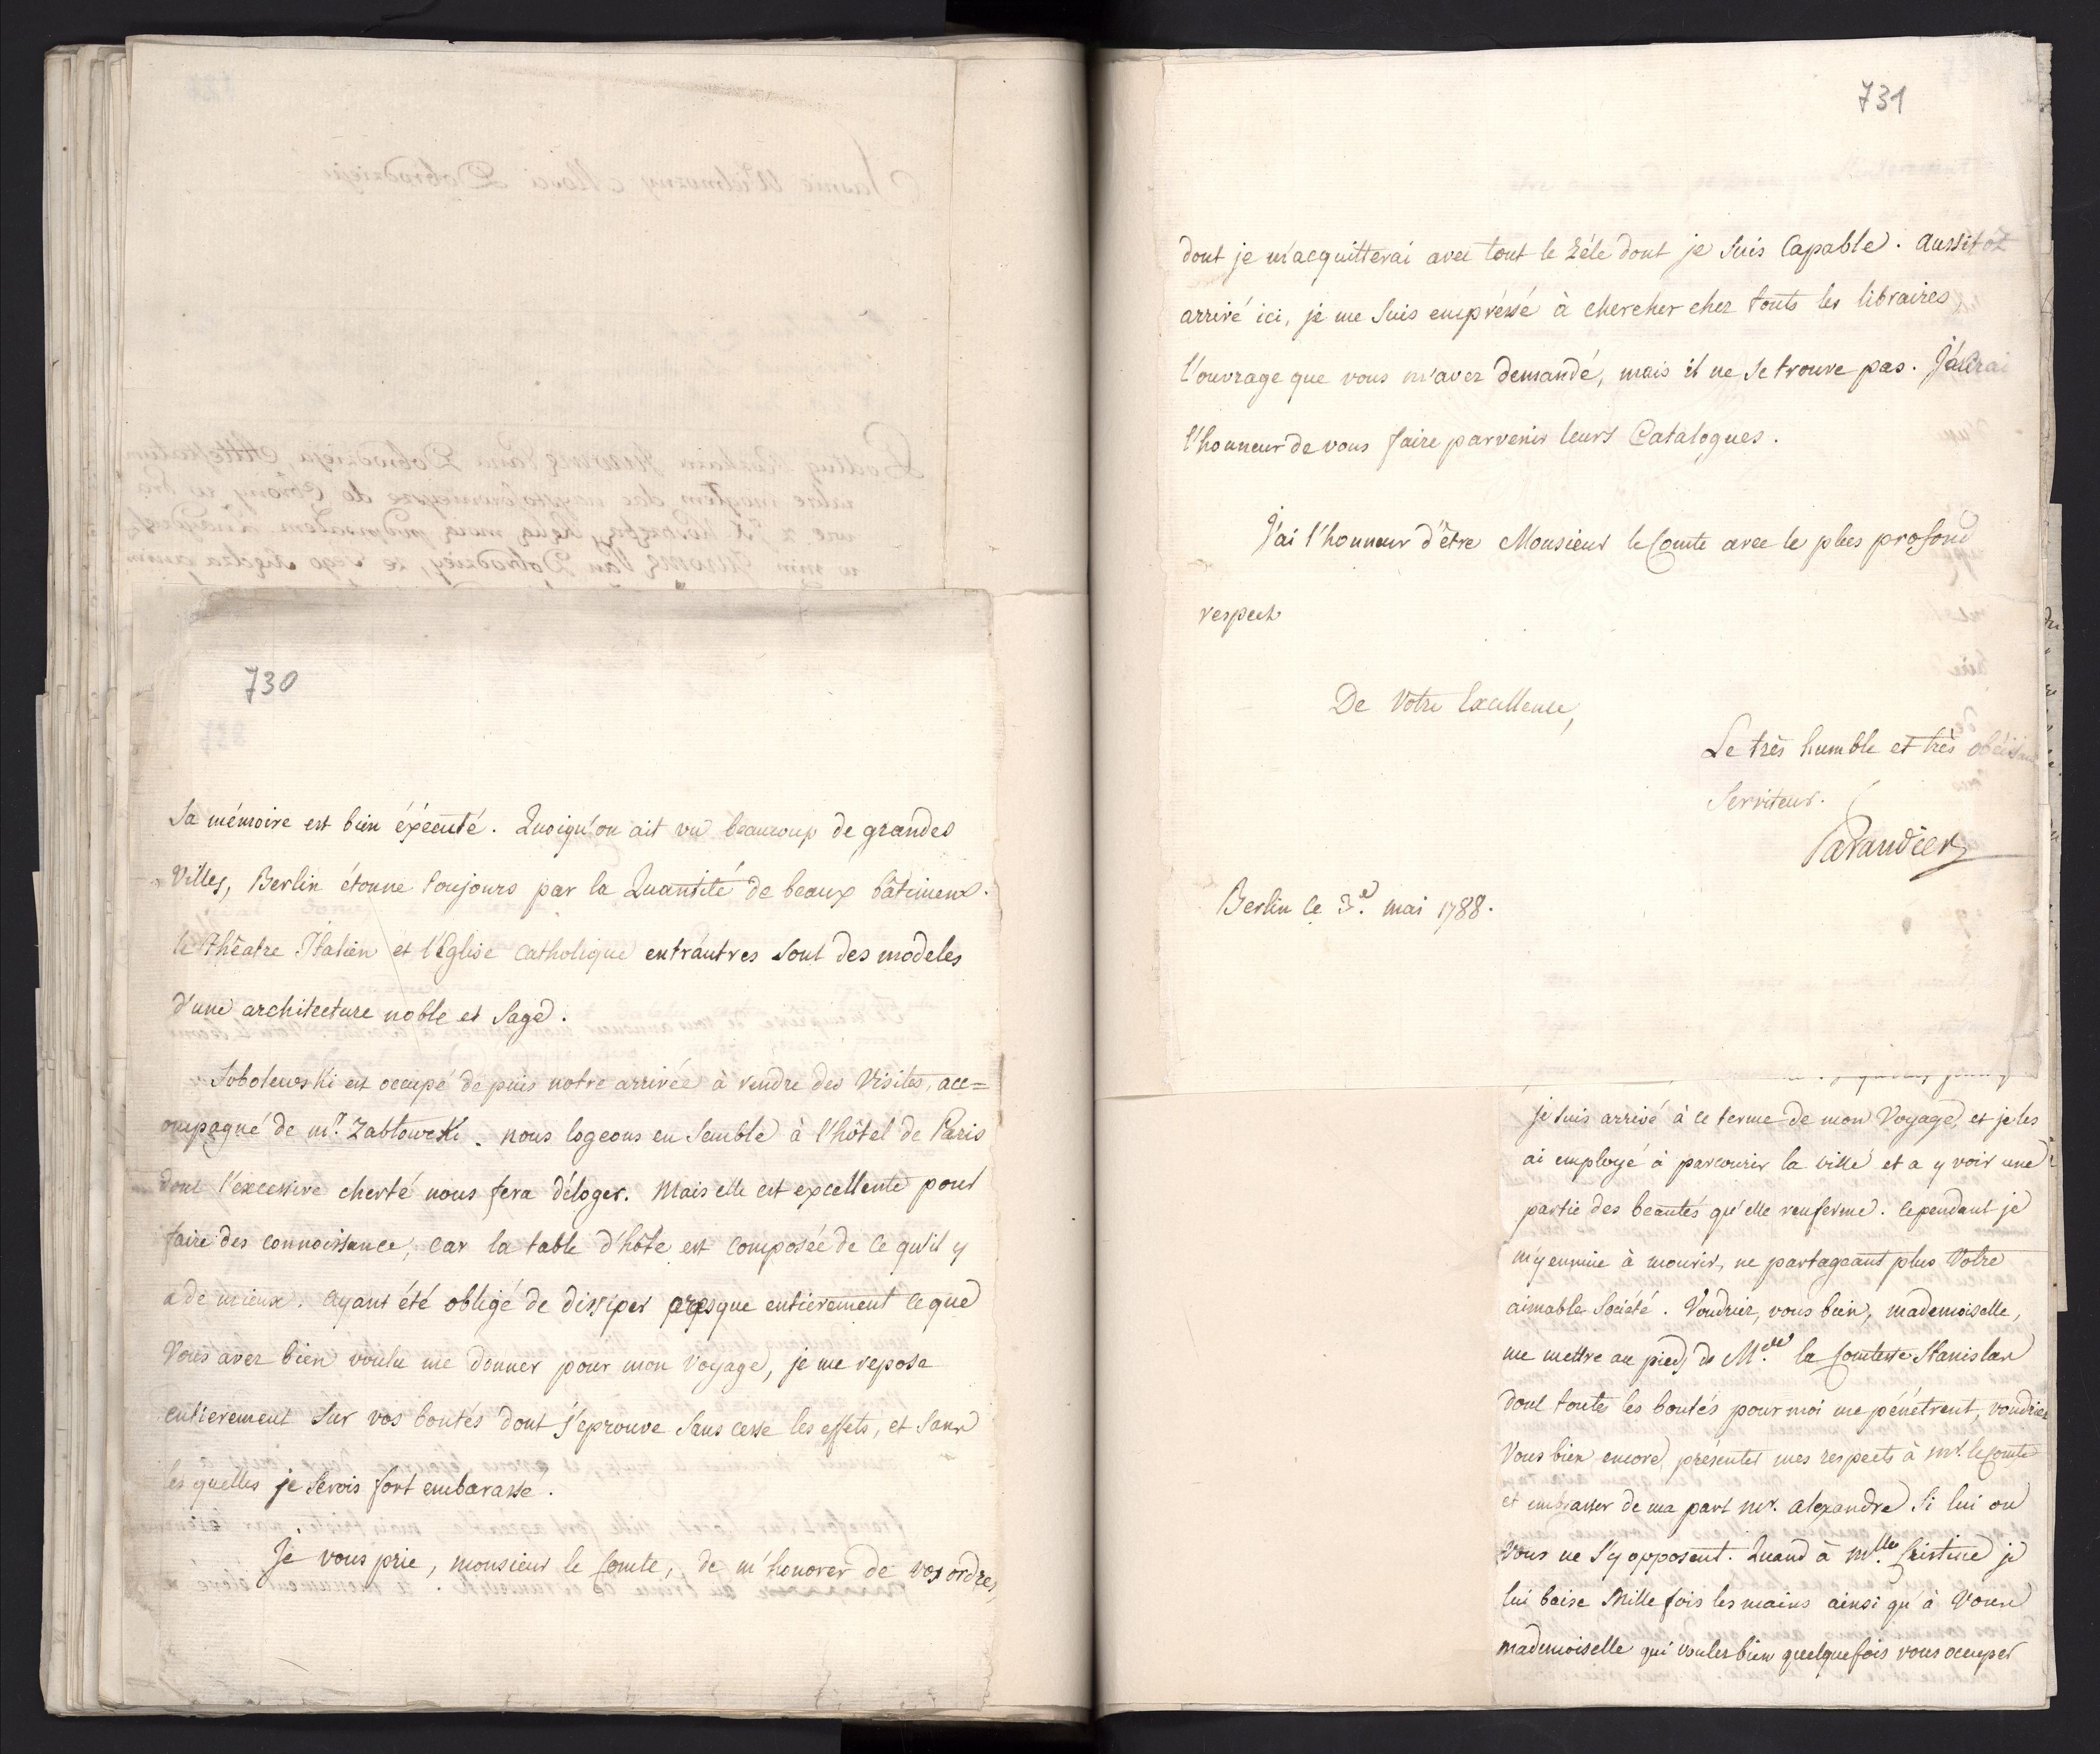 730
Sa mémoire est bien éxécuté. Quoiqu'on ait vu beaucoup de grandes
Villes, Berlin étonne toujours par la Quantité de beaux bâtimens.
le Théatre Italien et l'église catholique entráutres sont des modeles
d'une architecture noble et sage.
Sobolewski est occupé depuis notre arrivée à rendre des Visites, acc=
ompagné de mr. Zabłowski. nous logeons en semble à l'hôtel de Paris
dont l'excessive cherté nous fera déloger. Mais elle est excellente pour
faire des connoissance, car la table d'hôte est composée de ce qu'il y
a de mieux. ayant été obligé de dissiper presque entièrement ce que
Vous avez bien voulu me donner pour mon Voyage, je me repose
entierement sur vos bontés dont j'éprouve sans cesse les effets, et sans
les quelles je serois fort embarassé.
Je vous prie, monsieur le Comte, de m'honorer de vos ordres,
731
dont je m'acquitterai avec tout le zéle dont je suis Capable. aussitot
arrivé ici, je me suis empréssé à chercher chez touts les libraires
l'ouvrage que vous m'avez demandé, mais il ne se trouve pas. J'aurai
l'honneur de vous faire parvenir leurs Catalogues.
J'ai l'honneur d'être Monsieur le Comte avec le plus profond
respect
De Votre Excellence,
Le très humble et très obéissant
Serviteur.
Parandier
Berlin le 3e. mai 1788.
je suis arrivé à ce terme de mon Voyage, et je les
ai employé à parcourir la ville et a y voir une
partie des beautés qu'elle renferme. cependant je
m'y ennuie à mourir, ne partageant plus Votre
aimable Société. Voudriez, vous bien, mademoiselle,
me mettre au pieds de Mde. la Comtesse Stanislas
dont toute les bontés pour moi me pénétrent, voudriez
Vous bien encore présenter mes respects à mr. le Comte
et embrasser de ma part mr. alexandre si lui ou
Vous ne s'y opposent. Quand à mlle. Cristine je
lui baise mille fois les mains ainsi qu'à Vous
mademoiselle qui voulez bien quelquefois vous occuper